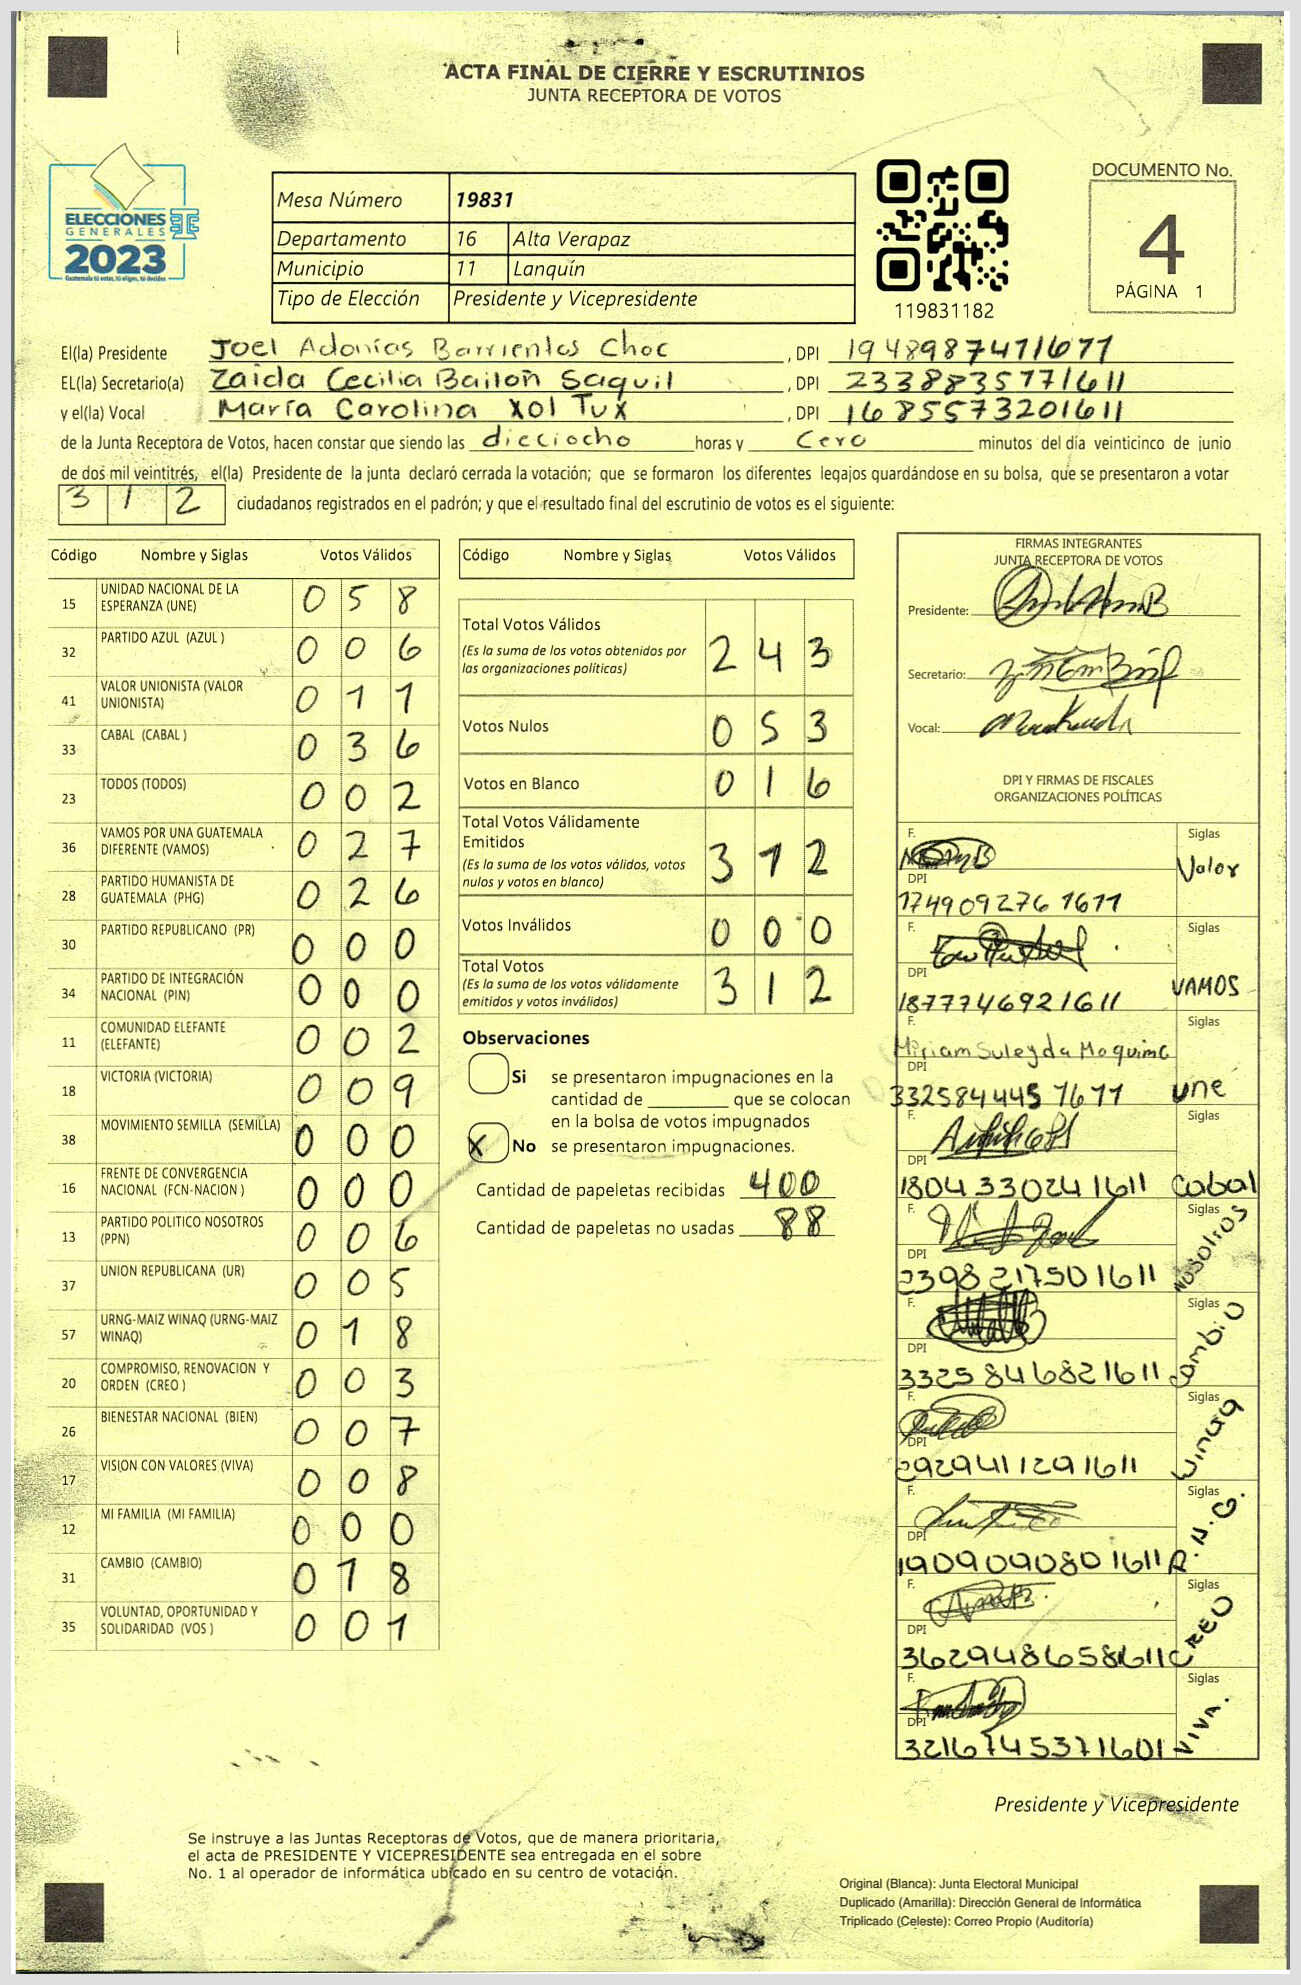 ACTA FINAL DE CIERRE Y ESCRUTINIOS
JUNTA RECEPTORA DE VOTOS
ELECCIONES
GENERALES
2023
Mesa Número 19831
Departamento 16 Alta Verapaz
Municipio 11 Lanquín
Tipo de Elección Presidente y Vicepresidente
119831182
DOCUMENTO No.
4
PÁGINA 1
El(la) Presidente Joel Adonías Barrientos Choc , DPI 1948987471611
EL(la) Secretario(a) Zaida Cecilia Bailón Saquil , DPI 2338835771611
y el(la) Vocal María Carolina Xol Tux , DPI 1685573201611
de la Junta Receptora de Votos, hacen constar que siendo las dieciocho horas y Cero minutos del día veinticinco de junio
de dos mil veintitrés, el(la) Presidente de la junta declaró cerrada la votación; que se formaron los diferentes legajos guardándose en su bolsa, que se presentaron a votar
312 ciudadanos registrados en el padrón; y que el resultado final del escrutinio de votos es el siguiente:
Código Nombre y Siglas Votos Válidos
15 UNIDAD NACIONAL DE LA
ESPERANZA (UNE) 058
32 PARTIDO AZUL (AZUL ) 006
41 VALOR UNIONISTA (VALOR
UNIONISTA) 011
33 CABAL (CABAL ) 036
23 TODOS (TODOS) 002
36 VAMOS POR UNA GUATEMALA
DIFERENTE (VAMOS) 027
28 PARTIDO HUMANISTA DE
GUATEMALA (PHG) 026
30 PARTIDO REPUBLICANO (PR) 000
34 PARTIDO DE INTEGRACIÓN
NACIONAL (PIN) 000
11 COMUNIDAD ELEFANTE
(ELEFANTE) 002
18 VICTORIA (VICTORIA) 009
38 MOVIMIENTO SEMILLA (SEMILLA) 000
16 FRENTE DE CONVERGENCIA
NACIONAL (FCN-NACION ) 000
13 PARTIDO POLITICO NOSOTROS
(PPN) 006
37 UNION REPUBLICANA (UR) 005
57 URNG-MAIZ WINAQ (URNG-MAIZ
WINAQ) 018
20 COMPROMISO, RENOVACION Y
ORDEN (CREO ) 003
26 BIENESTAR NACIONAL (BIEN) 007
17 VISION CON VALORES (VIVA) 008
12 MI FAMILIA (MI FAMILIA) 000
31 CAMBIO (CAMBIO) 018
35 VOLUNTAD, OPORTUNIDAD Y
SOLIDARIDAD (VOS ) 001
Código Nombre y Siglas Votos Válidos
Total Votos Válidos
(Es la suma de los votos obtenidos por
las organizaciones políticas) 243
Votos Nulos 053
Votos en Blanco 016
Total Votos Válidamente
Emitidos
(Es la suma de los votos válidos, votos
nulos y votos en blanco) 312
Votos Inválidos 000
Total Votos
(Es la suma de los votos válidamente
emitidos y votos inválidos) 312
Observaciones
Si se presentaron impugnaciones en la
cantidad de ________ que se colocan
en la bolsa de votos impugnados
X No se presentaron impugnaciones.
Cantidad de papeletas recibidas 400
Cantidad de papeletas no usadas 88
FIRMAS INTEGRANTES
JUNTA RECEPTORA DE VOTOS
Presidente:
Secretario:
Vocal:
DPI Y FIRMAS DE FISCALES
ORGANIZACIONES POLÍTICAS
F. Siglas
Valor
DPI
1749092761611
F. Siglas
DPI VAMOS
1877746921611
F. Siglas
Miriam Suleyda Maquima
DPI
3325844457611 une
F. Siglas
DPI
1804330241611 Cabal
F. Siglas
DPI
2398217501611 Nosotros
F. Siglas
DPI
3325846821611 Cambio
F. Siglas
DPI
2929411291611 Winaq
F. Siglas
DPI
1909090801611 P.H.G.
F. Siglas
DPI
3629486581611 CREO
F. Siglas
DPI
3216745371601 VIVA.
Presidente y Vicepresidente
Se instruye a las Juntas Receptoras de Votos, que de manera prioritaria,
el acta de PRESIDENTE Y VICEPRESIDENTE sea entregada en el sobre
No. 1 al operador de informática ubicado en su centro de votación.
Original (Blanca): Junta Electoral Municipal
Duplicado (Amarilla): Dirección General de Informática
Triplicado (Celeste): Correo Propio (Auditoría)